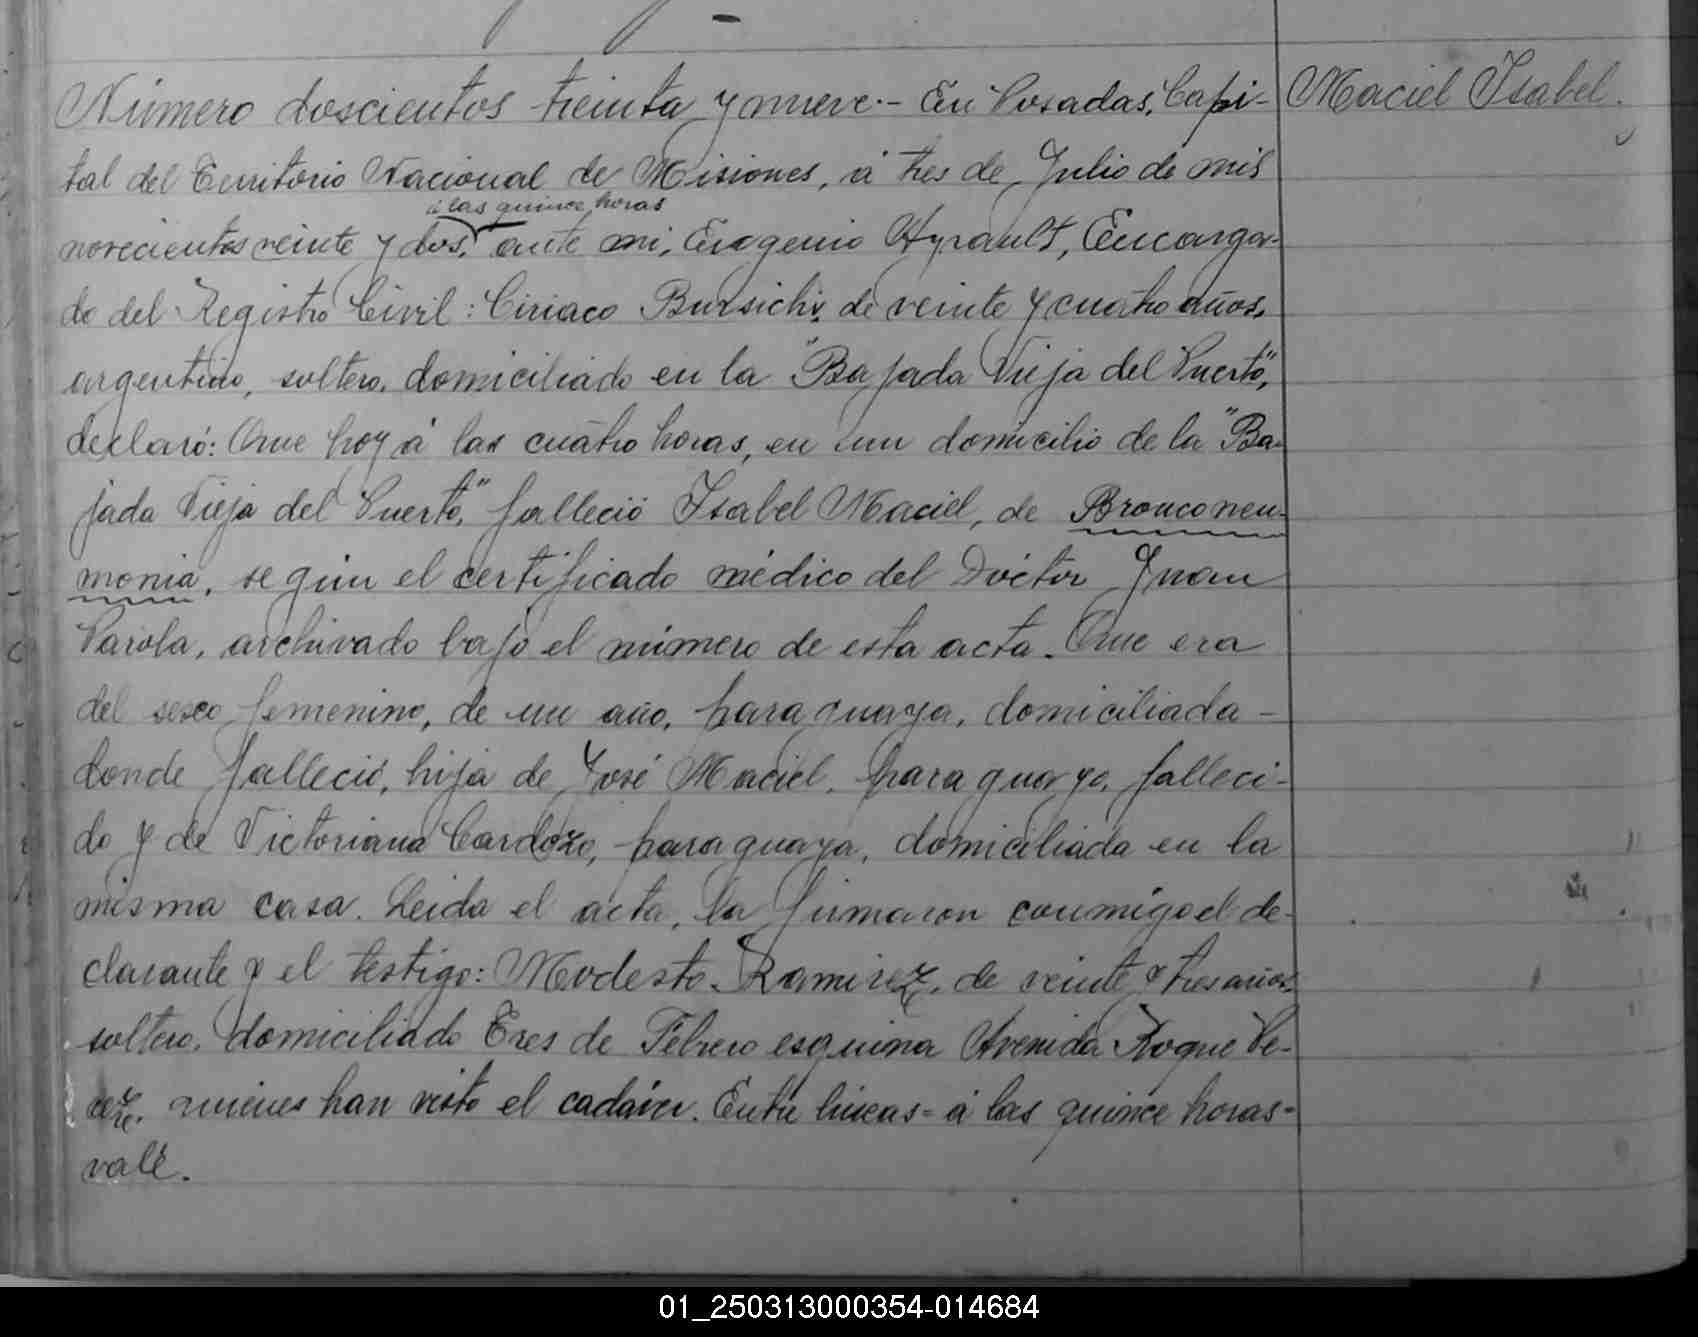 Número doscientos treinta y nueve.- En Posadas, Capi-
Maciel Isabel.
tal del Territorio Nacional de Misiones, á tres de Julio de mil
á las quince horas
novecientos veinte y dos, ante mi, Eugenio Ayrault, Encarga-
do del Registro Civil: Ciriaco Bursichi, de veinte y cuatro años,
argentino, soltero, domiciliado en la "Bajada Vieja del Puerto",
declaró: Que hoy á las cuátro horas, en un domicilio de la "Ba-
jada Vieja del Puerto", falleció Isabel Maciel, de Bronconeu-
monia, segun el certificado médico del Doctor Juan
Parola, archivado bajo el número de esta acta. Que era
del sexo femenino, de un año, paraguaya, domiciliada -
donde falleció, hija de José Maciel, paraguayo, falleci-
do y de Victoriana Cardozo, paraguaya, domiciliada en la
misma casa. Leida el acta, la firmaron conmigo el de-
clarante y el testigo: Modesto Ramirez, de veinte y tres años,
soltero, domiciliado Tres de Febrero esquina Avenida Roque
quienes han visto el cadáver. Entre lineas = á las quince horas =
vale.
01_250313000354-014684